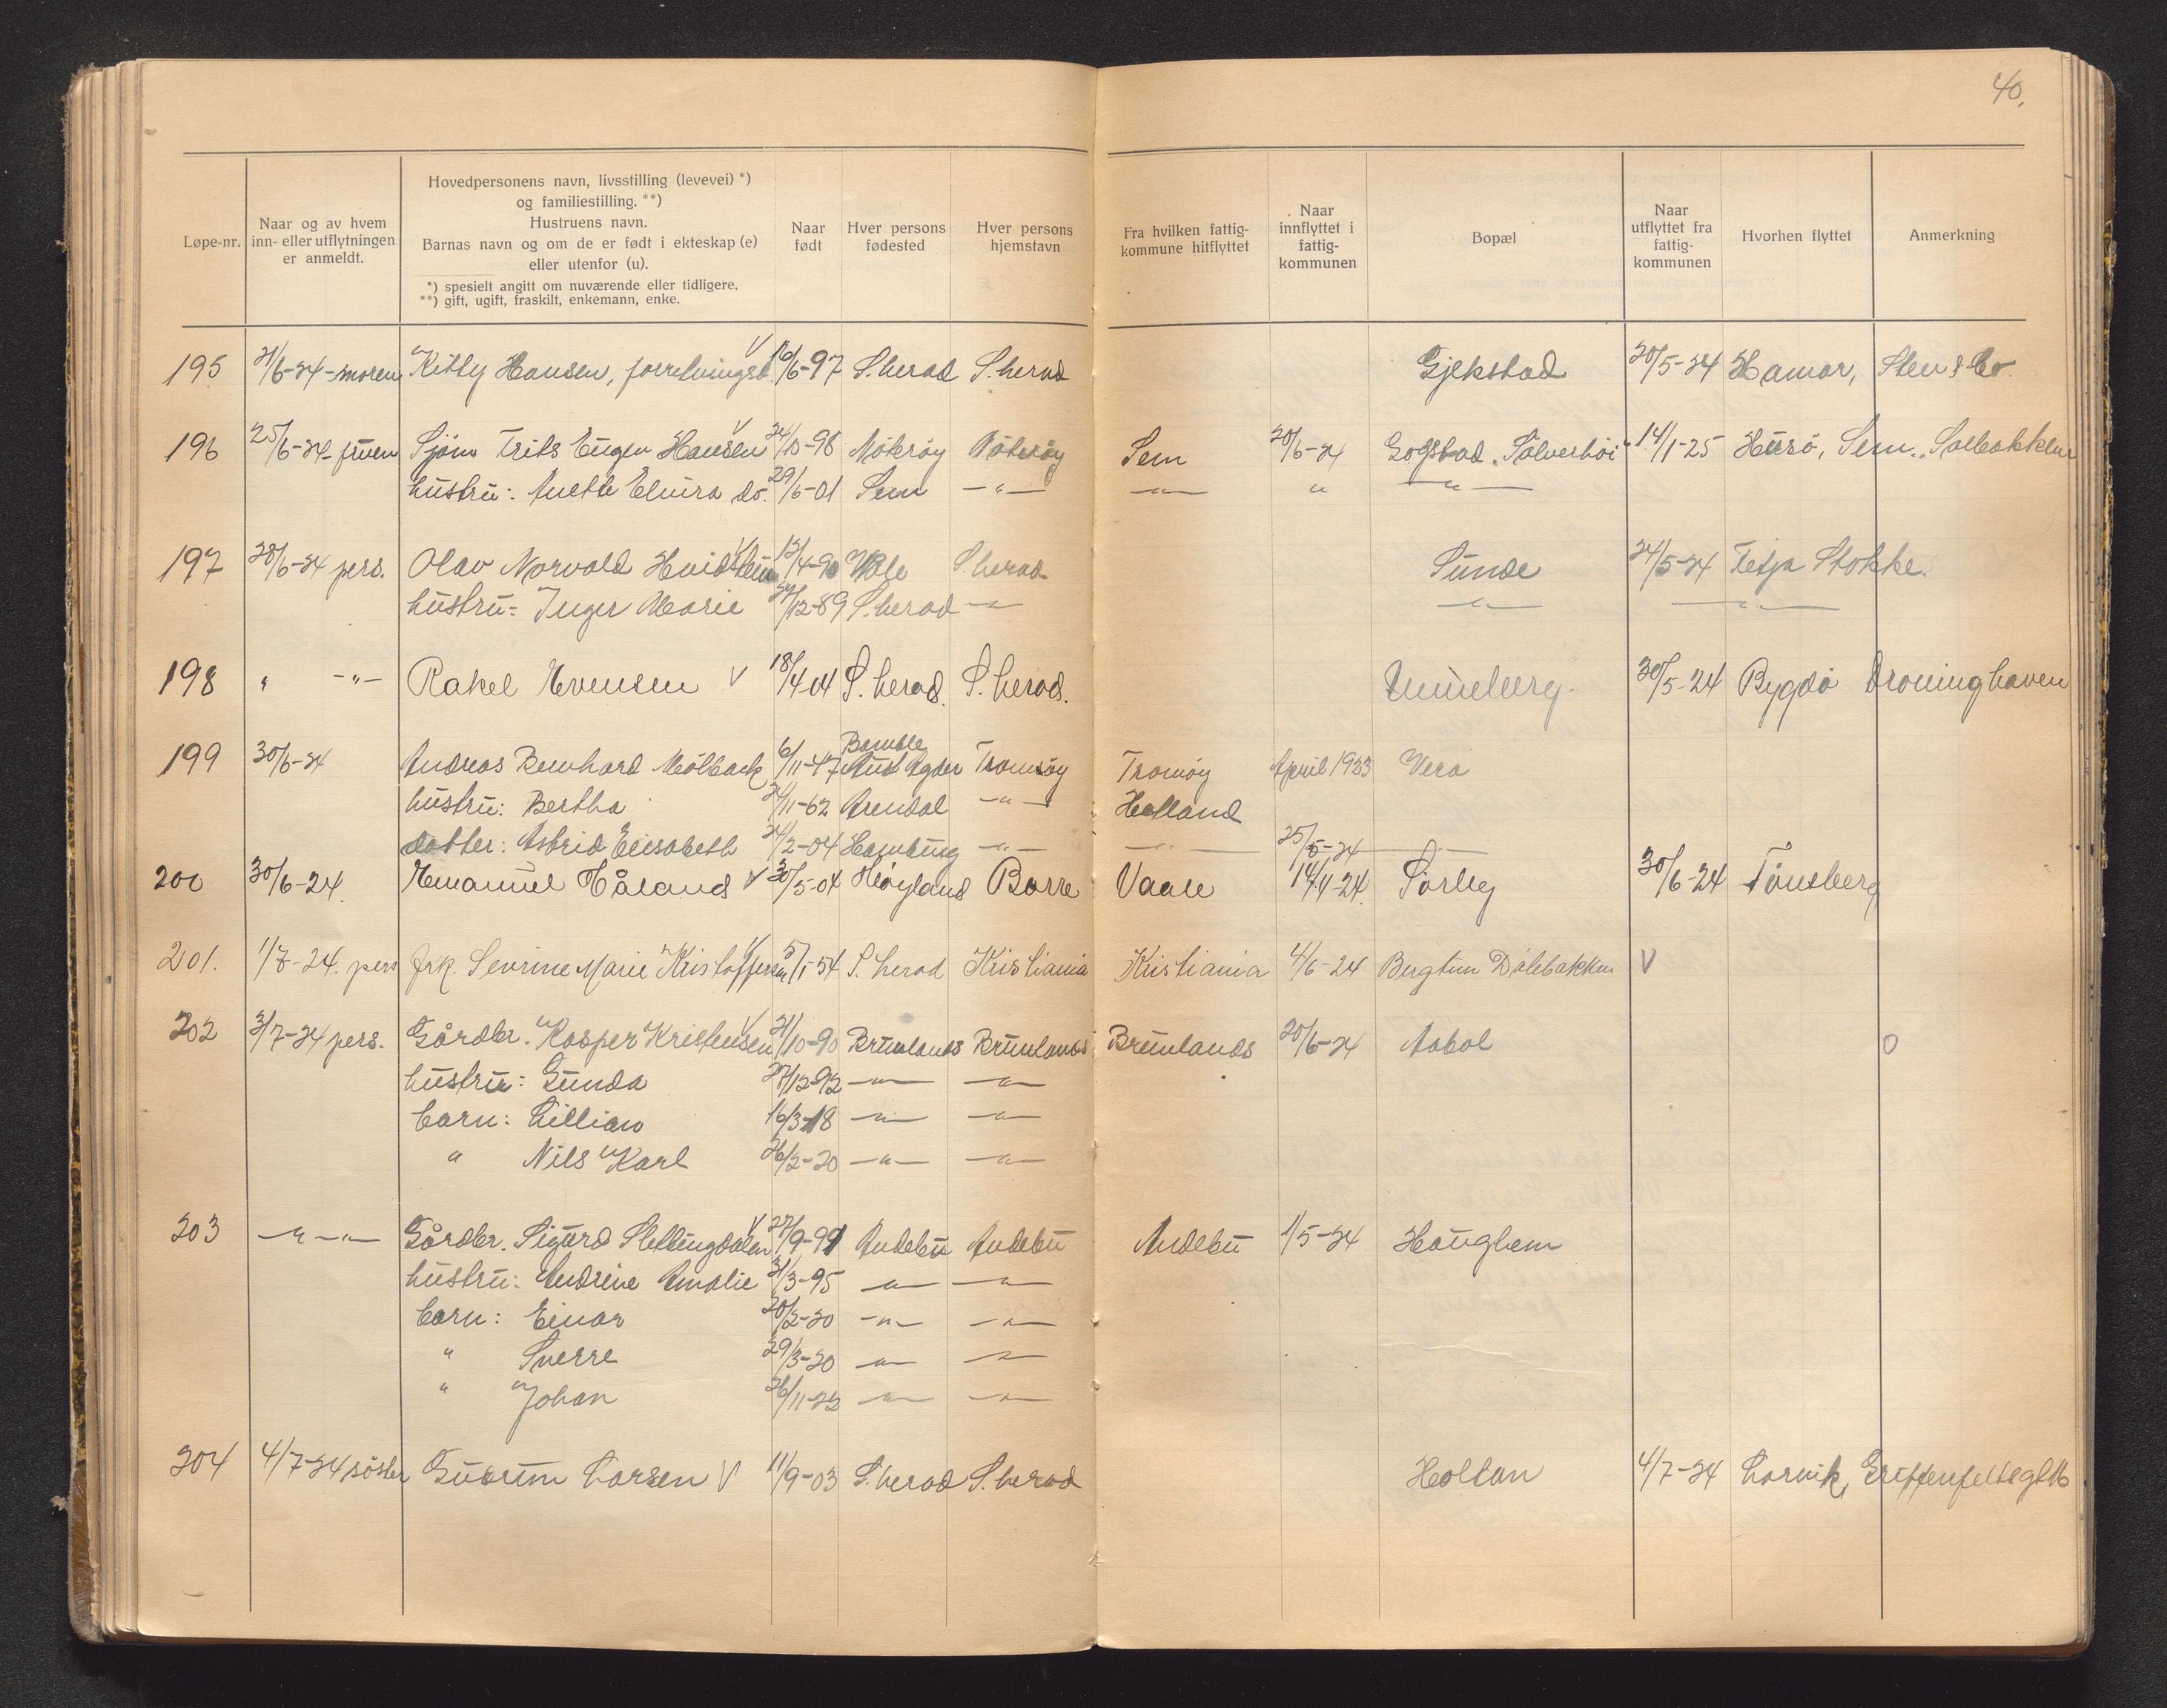 40.
Løpe-nr.
Naar og av hvem
inn- eller utflytningen
er anmeldt.
Hovedpersonens navn, livsstilling (levevei) *)
og familiestilling. **)
Hustruens navn.
Barnas navn og om de er født i ekteskap (e)
eller utenfor (u).
*) spesielt angitt om nuværende eller tidligere.
**) gift, ugift, fraskilt, enkemann, enke.
Naar
født
Hver persons
fødested
Hver persons
hjemstavn
Fra hvilken fattig-
kommune hitflyttet
Naar
innflyttet i
fattig-
kommunen
Bopæl
Naar
utflyttet fra
fattig-
kommunen
Hvorhen flyttet
Anmerkning
195 21/6-24-moren Kitty Hansen, V 16/6-97 S.herad S.herad Gjekstad 20/5-24 Hamar, Sten & Co.
196 25/6-24-fruen Sjöm. Frits Eugen Hansen V 24/10-98 Nöteröy Nöteröy Sem 20/6-24 Gogstad "Sölverhöi" 14/1-25 Husö, Sem. Solbakken
hustru: Anette Elvira do. 29/6-01 Sem -"- -"- " -"-
197 28/6-24 pers. Olav Norvald Hvidsten V 12/4-90 Våle S.herad Sunde 24/5-24 Feste Stokke.
hustru: Inger Marie 24/12-89 S.herad -"- -"- -"-
198 " -"- Rakel Evensen V 18/4 04 S. herad. S. herad. Unneberg. 30/5-24 Bygdö Droninghaven
199 30/6-24 Andreas Bernhard Mölback 6/11-47 Bamble Aust Agder Tromöy Tromöy April 1923 Vera
hustru: Bertha 24/11-62 Arendal -"- Holland
datter: Astrid Elisabeth 24/2-04 Hamburg -"- -"- 25/5-24
200 30/6-24. Emanuel Håland V 30/5-04 Höyland Borre Vaale 14/4-24. Sörby 30/6-24 Tönsberg
201. 1/7-24. pers frk. Sevrine Marie Kristoffersen V 5/1-54 S. herad Kristiania Kristiania 4/6-24 Bergtun Dölebakken V
202 3/7-24 pers. Gårdbr. Kasper Kristensen V 21/10-90 Brunlanes Brunlanes Brunlanes 20/6-24 Aabol O
hustru: Gunda 27/12-92 -"- -"-
barn: Lillian 16/3-18 -"- -"-
" Nils Karl 26/2-20 -"- -"-
203 -"- -"- Gårdbr. Sigurd Slettingdalen V 27/9-91 Andebu Andebu Andebu 1/5-24 Haughem
hustru: Andrine Amalie 31/3-95 -"- -"-
barn: Einar 20/2-20 -"- -"-
" Sverre 29/3-20 -"- -"-
" Johan 26/11-22 -"- -"-
204 4/7-24 söster Gudrun Larsen V 11/9-03 S.herad S.herad Holtan 4/7-24 Larvik, Griffenfeltsgt 16